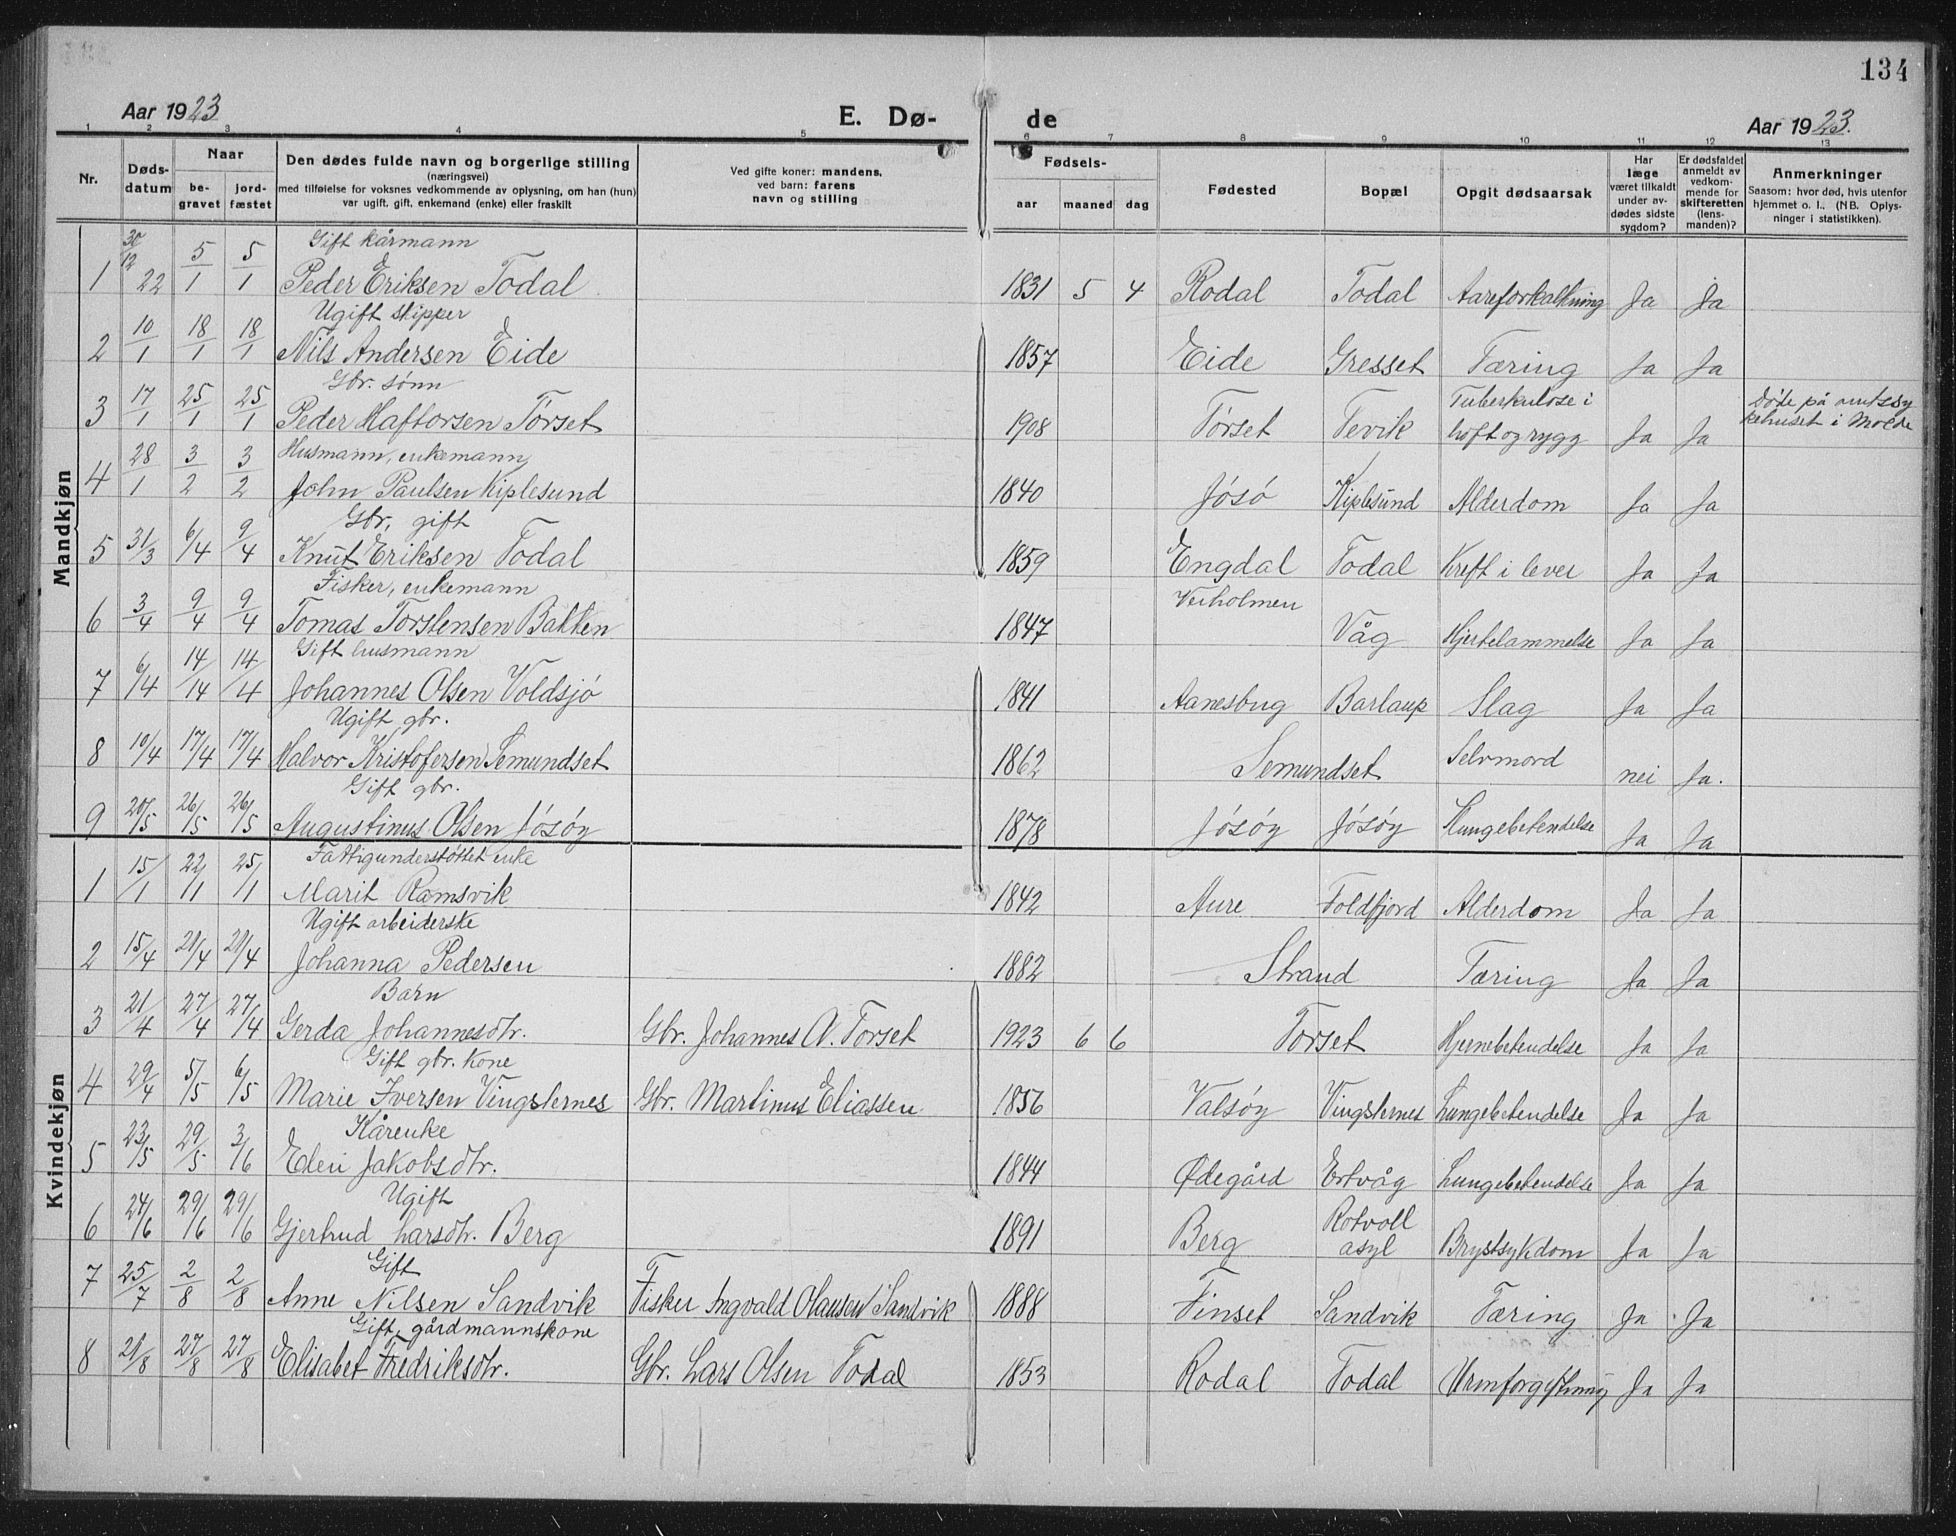 134
Aar 1923
E. Dø-
de
Aar 1923.
1 2 3 4 5 6 7 8 9 10 11 12 13
Nr.
Døds-
datum
Naar
be-
gravet
jord-
fæstet
Den dødes fulde navn og borgerlige stilling
(næringsvei)
med tilføielse for voksnes vedkommende av oplysning, om han (hun)
var ugift, gift, enkemand (enke) eller fraskilt
Ved gifte koner: mandens,
ved barn: farens
navn og stilling
Fødsels-
aar maaned dag
Fødested
Bopæl
Opgit dødsaarsak
Har
læge
været tilkaldt
under av-
dødes sidste
sygdom?
Er dødsfaldet
anmeldt av
vedkom-
mende for
skifteretten
(lens-
manden)?
Anmerkninger
Saasom: hvor død, hvis utenfor
hjemmet o. l.. (NB. Oplys-
ninger i statistikken).
Mandkjøn
Gift kårmann
1 30/12 22 5/1 5/1 Peder Eriksen Todal 1831 5 4 Rodal Todal Aareforkalkning Ja Ja
Ugift skipper
2 10/1 18/1 18/1 Nils Andersen Eide 1857 Eide Gresset Tæring Ja Ja
Gbr. sønn
3 17/1 25/1 25/1 Peder Haftorsen Törset 1908 Törset Tevik Tuberkulose i
hoft og rygg Ja Ja Döde på amtssy
kehuset i Molde
Husmann, enkemann
4 28/1 3/2 3/2 John Paulsen Kiplesund 1840 Jösö Kiplesund Alderdom Ja Ja
Gbr, gift
5 31/3 6/4 9/4 Knut Eriksen Todal 1859 Engdal Todal Kreft i lever Ja Ja
Fisker, enkemann
6 3/4 9/4 9/4 Tomas Torstensen Bakken 1847 Verholmen Våg Hjertelammelse Ja Ja
Gift husmann
7 6/4 14/14 14/4 Johannes Olsen Voldsjö 1841 Aanesbug Barlaup Slag Ja Ja
Ugift gbr.
8 10/4 17/4 17/4 Halvor Kristofersen Semundset 1862 Semundset Selvmord nei Ja.
Gift gbr.
9 20/5 26/5 26/5 Augustinus Olsen Jösöy 1878 Jösöy Jösöy Lungebetendelse Ja Ja
Kvindekjøn
Fattigunderstöttet enke
1 15/1 22/1 25/1 Marit Ramsvik 1842 Aure Foldfjord Alderdom Ja Ja
Ugift arbeiderske
2 15/4 21/4 21/4 Johanna Pedersen 1882 Strand Tæring Ja Ja
Barn
3 21/4 27/4 27/4 Gerda Johannesdtr. Gbr. Johannes A. Torset 1923 6 6 Torset Hjernebetendelse Ja Ja
Gift gbr. kone
4 29/4 5/5 6/5 Marie Iversen Vingsternes Gbr. Martinus Eliassen 1856 Valsöy Vingsternes Lungebetendelse Ja Ja
Kårenke
5 23/5 29/5 3/6 Eleri Jakobsdtr. 1844 Ødegård Ertvåg Lungebetendelse Ja Ja
Ugift
6 24/6 29/6 29/6 Gjertrud Larsdtr. Berg 1891 Berg Rotvoll
asyl Brystsykdom Ja Ja
Gift
7 25/7 2/8 2/8 Anne Nilsen Sandvik Fisker Ingvald Olaussen Sandvik 1888 Finset Sandvik Tæring Ja Ja
Gift, gårdmannskone
8 21/8 27/8 27/8 Elisabet Fredriksdtr. Gbr. Lars Olsen Todal 1853 Rodal Todal Urinforgiftning Ja Ja